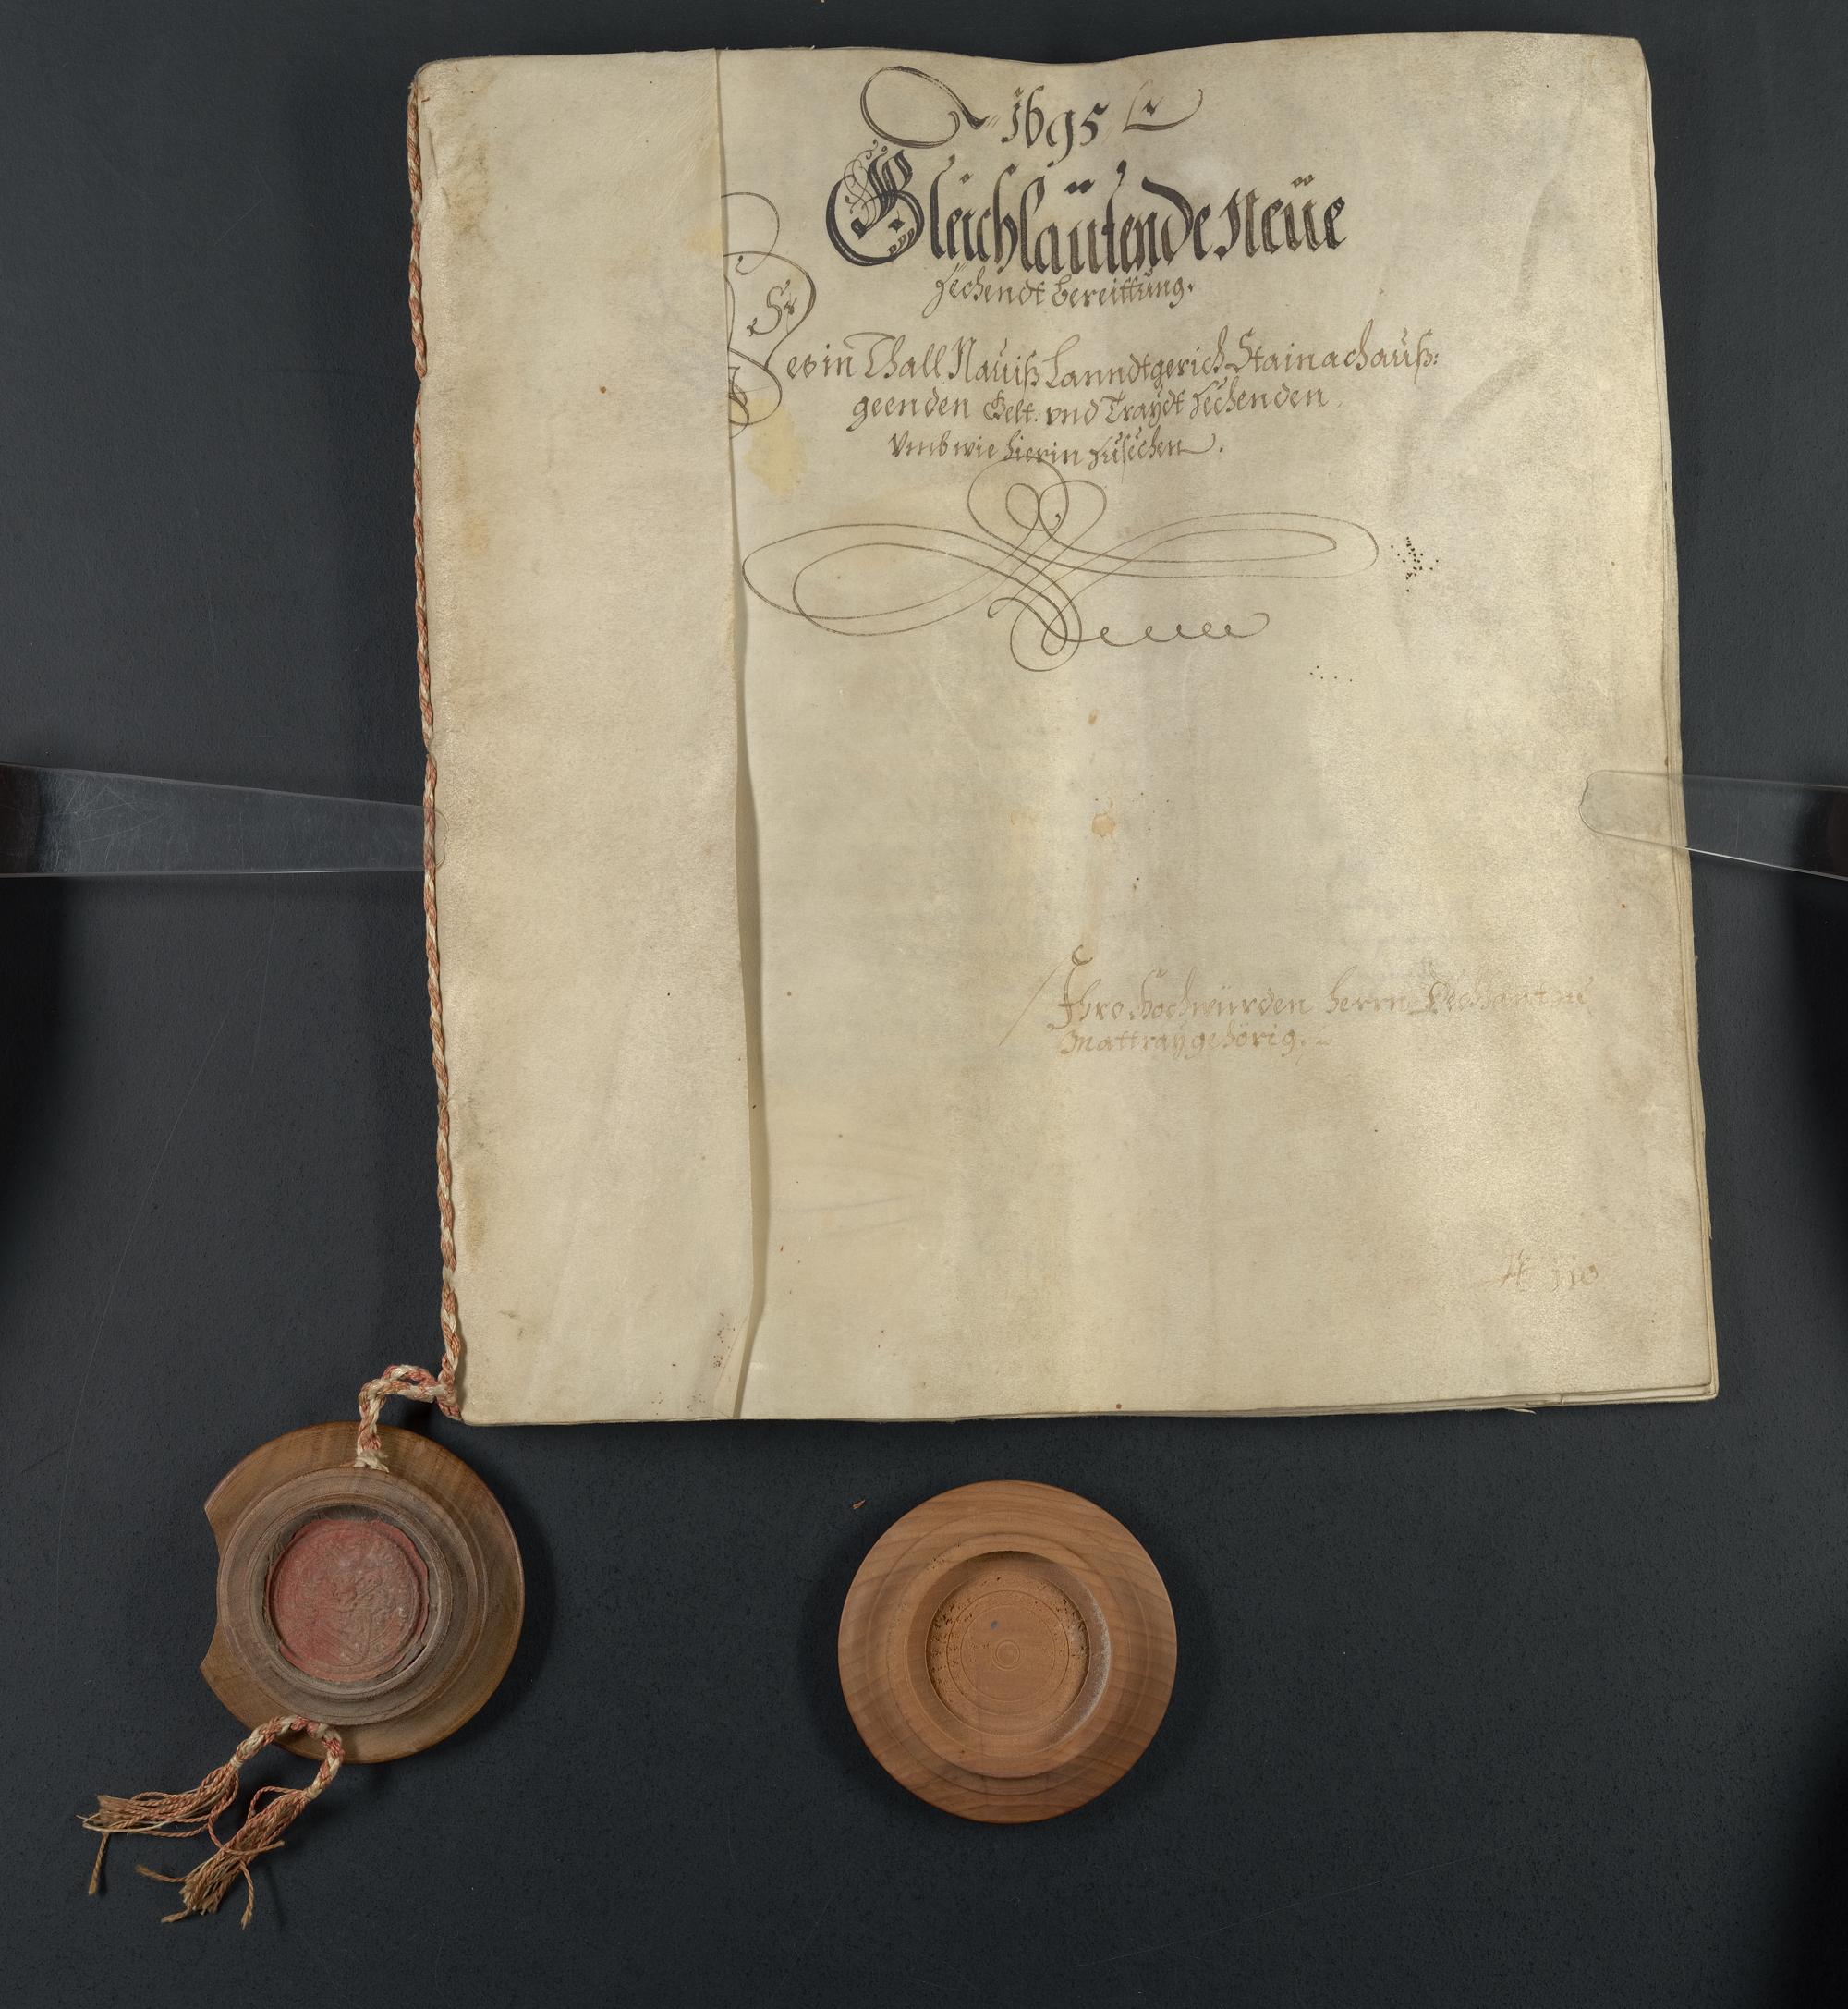 1695
Gleichlaütende Neüe
Zechendt bereittung.
Des in Thall Nauiß Lanndtgerich Stainach auß:
geenden Gelt: vnd Traÿdt Zechenden
Vmb wie hierin Zusechen.
Ihro Hochwürden herrn Dechant zu
Mattraÿ gehörig.
110